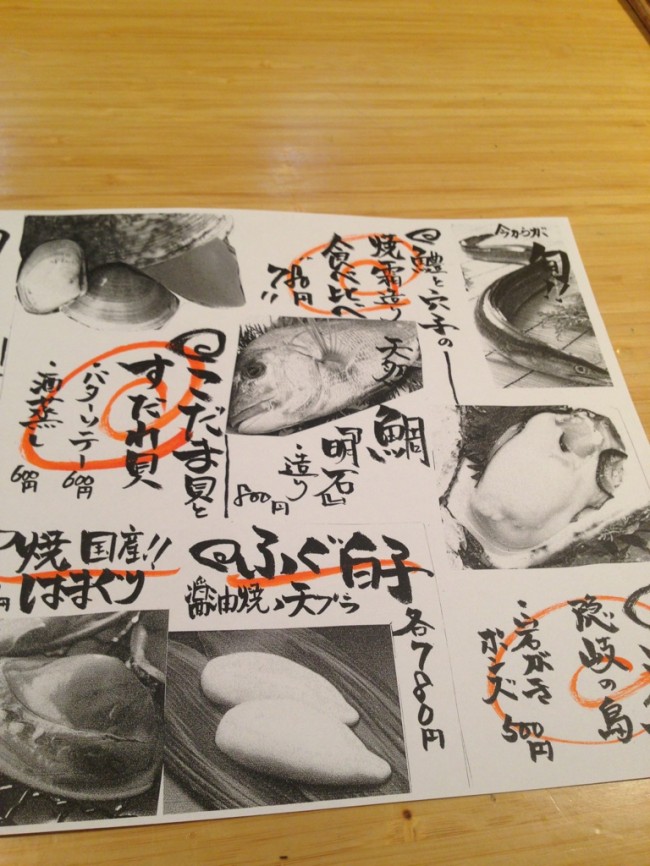 今からが
旬!!
鱧と穴子の
焼霜造り
食べ比べ
780円
天然
鯛
「明石」
・造り
800円
こだま貝と
すだれ貝
・バターソテー
600円
・酒蒸し
600円
隠岐の島
・岩がき
ポンズ
500円
ふぐ白子
醤油焼、天ブラ
各780円
焼国産!!
はまぐり
円